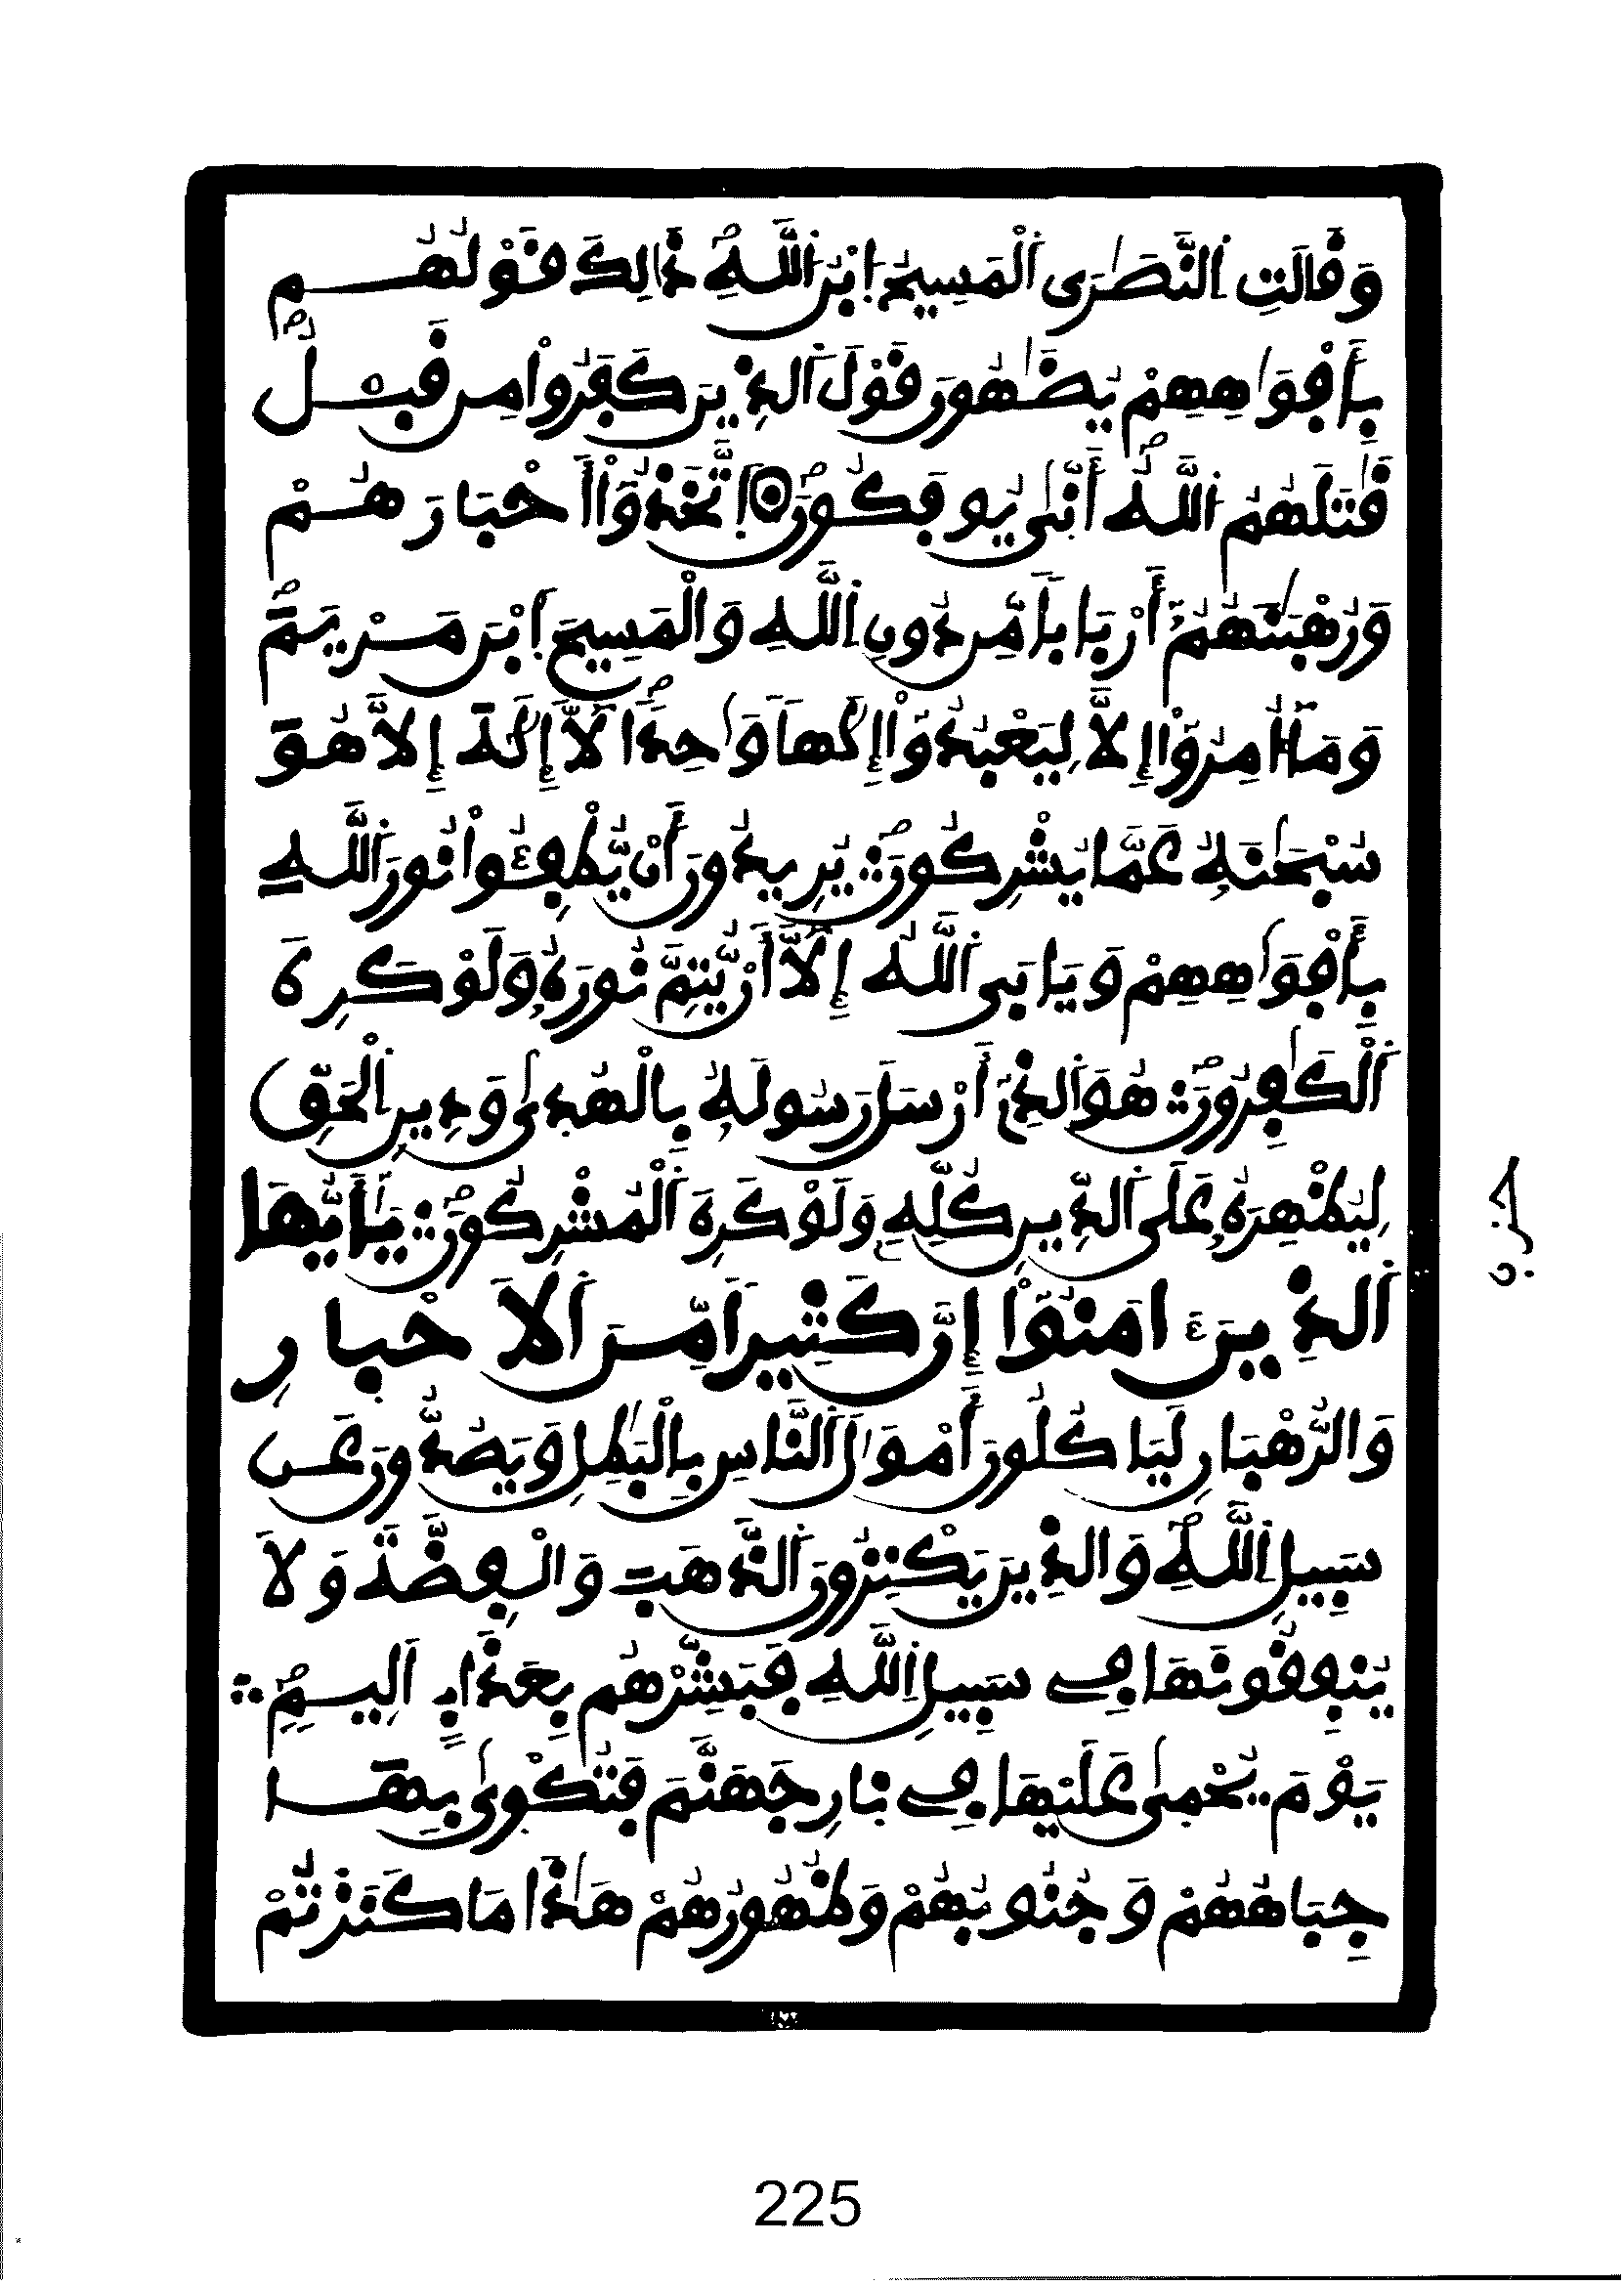 وَقَالَتِ اِ۬لنَّصَٰرَى اَ۬لْمَسِيحُ اُ۪بْنُ اُ۬للَّهِۖ ذَٰلِكَ قَوْلُهُم
بِأَفْوَٰهِهِمْۖ يُضَٰهُونَ قَوْلَ اَ۬لذِينَ كَفَرُواْ مِن قَبْلُۖ
قَٰتَلَهُمُ اُ۬للَّهُۖ أَنّ۪ىٰ يُوفَكُونَۖ اَ۪تَّخَذُوٓاْ أَحْبَارَهُمْ
وَرُهْبَٰنَهُمُۥٓ أَرْبَاباٗ مِّن دُونِ اِ۬للَّهِ وَالْمَسِيحَ اَ۪بْنَ مَرْيَمَۖ
وَمَآ أُمِرُوٓاْ إِلَّا لِيَعْبُدُوٓاْ إِلَٰهاٗ وَٰحِداٗۖ لَّآ إِلَٰهَ إِلَّا هُوَ
سُبْحَٰنَهُۥ عَمَّا يُشْرِكُونَۖ يُرِيدُونَ أَنْ يُّطْفِـُٔواْ نُورَ اَ۬للَّهِ
بِأَفْوَٰهِهِمْ وَيَابَى اَ۬للَّهُ إِلَّآ أَنْ يُّتِمَّ نُورَهُۥ وَلَوْ كَرِهَ
اَ۬لْكَٰفِرُونَۖ هُوَ اَ۬لذِےٓ أَرْسَلَ رَسُولَهُۥ بِالْهُد۪ىٰ وَدِينِ اِ۬لْحَقِّ
لِيُظْهِرَهُۥ عَلَى اَ۬لدِّينِ كُلِّهِۦ وَلَوْ كَرِهَ اَ۬لْمُشْرِكُونَۖ يَٰٓأَيُّهَا
اَ۬لذِينَ ءَامَنُوٓاْ إِنَّ كَثِيراٗ مِّنَ اَ۬لَاحْبِارِ
وَالرُّهْبَانِ لَيَاكُلُونَ أَمْوَٰلَ اَ۬لنَّاسِ بِالْبَٰطِلِ وَيَصُدُّونَ عَن
سَبِيلِ اِ۬للَّهِۖ وَالذِينَ يَكْنِزُونَ اَ۬لذَّهَبَ وَالْفِضَّةَ وَلَا
يُنفِقُونَهَا فِے سَبِيلِ اِ۬للَّهِ فَبَشِّرْهُم بِعَذَابٍ اَلِيمٖۖ
يَوْمَ يُحْم۪ىٰ عَلَيْهَا فِے نَارِ جَهَنَّمَ فَتُكْو۪ىٰ بِهَا
جِبَاهُهُمْ وَجُنُوبُهُمْ وَظُهُورُهُمْ هَٰذَا مَا كَنَزْتُمْ
225